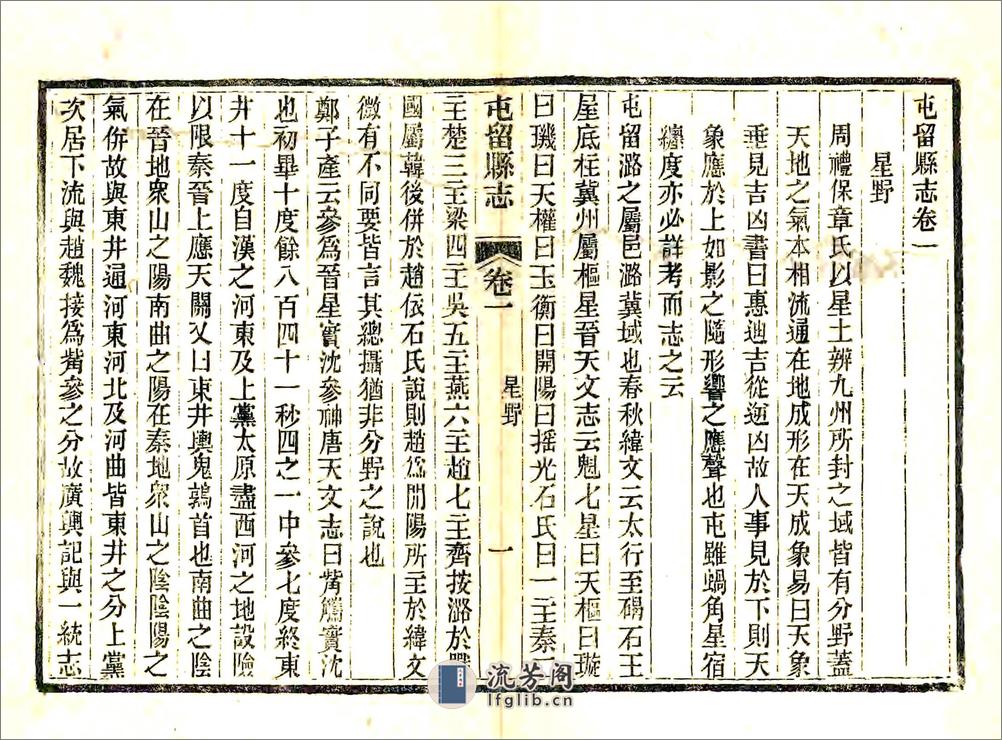 屯留縣志卷一
星野
周禮保章氏以星土辨九州所封之域皆有分野蓋
天地之氣本相流通在地成形在天成象易曰天象
垂見吉凶書曰惠迪吉從逆凶故人事見於下則天
象應於上如影之隨形響之應聲也屯雖蝸角星宿
纏度亦必詳考而志之云
屯留潞之屬邑潞冀域也春秋緯文云太行至碣石王
屋底柱冀州屬樞星晉天文志云魁七星曰天樞曰璇
曰璣曰天權曰玉衡曰開陽曰摇光石氏曰一主秦
屯留縣志
卷一
星野
一
二主楚三主梁四主吳五主燕六主趙七主齊按潞於戰
國屬韓後併於趙依石氏說則趙為開陽所主於緯文
微有不同要皆言其總攝猶非分野之說也
鄭子產云參為晉星實沈參神唐天文志曰觜觿實沈
也初畢十度餘八百四十一秒四之一中參七度終東
井十一度自漢之河東及上黨太原盡西河之地設險
以限秦晉上應天關又曰東井輿鬼鶉首也南曲之陰
在晉地衆山之陽南曲之陽在秦地衆山之陰陰陽之
氣併故與東井通河東河北及河曲皆東井之分上黨
次居下流與趙魏接為觜參之分故廣輿記與一統志
流芳阁
lfglib.cn